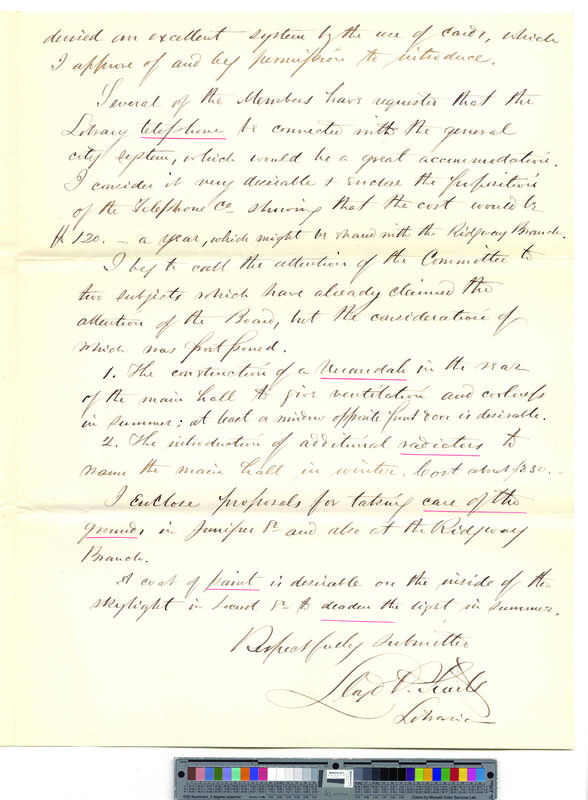 devised an excellent system by the use of cards, which
I approve of and beg permission to introduce.
Several of the Members have requested that the
Library telephone be connected with the general
city system, which would be a great accommodation.
I consider it very desirable & enclose the proposition
of the Telephone Co showing that the cost would be
$120. – a year, which might be shared with the Ridgway Branch.
I beg to call the attention of the Committee to
two subjects which have already claimed the
attention of the Board, but the consideration of
which was postponed.
1. The construction of a Verandah in the rear
of the main hall to give ventilation and coolness
in summer; at least a window opposite front door is desirable.
2. The introduction of additional radiators to
warm the main hall in winter. Cost about $350. –
I enclose proposals for taking care of the
grounds in Juniper St and also at the Ridgway
Branch.
A coat of paint is desirable on the inside of the
skylight in Locust St to deaden the light in summer.
Respectfully submitted
Lloyd P. Smith
Librarian